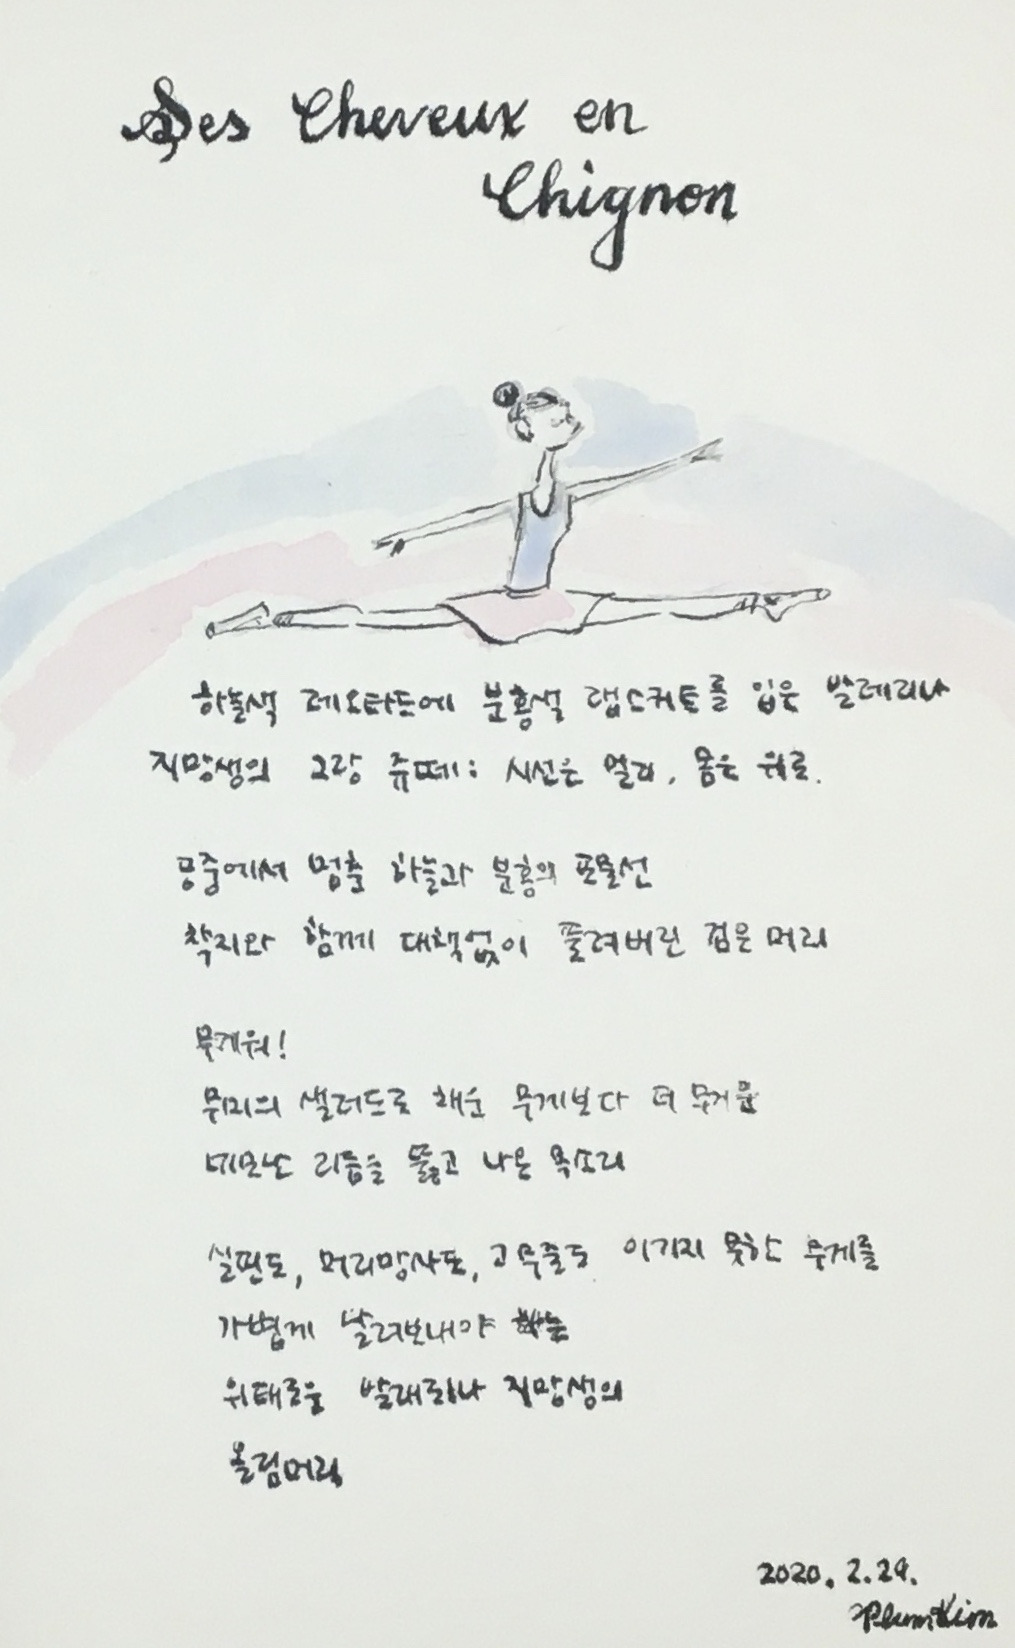 Ses Cheveux en
Chignon
하늘색 레오타드에 분홍색 랩스커트를 입은 발레리나
지망생의 그랑 쥬떼: 시선은 멀리, 몸은 위로.
공중에서 멈춘 하늘과 분홍의 포물선
착지와 함께 대책없이 풀려버린 검은 머리
무거워!
무미의 샐러드로 채운 무게보다 더 무거운
네모난 리듬을 뚫고 나온 목소리
실핀도, 머리망사도, 고무줄도 이기지 못한 무게를
가볍게 날려보내야 하는
위태로운 발레리나 지망생의
올림머리
2020. 2. 29.
PlumKim